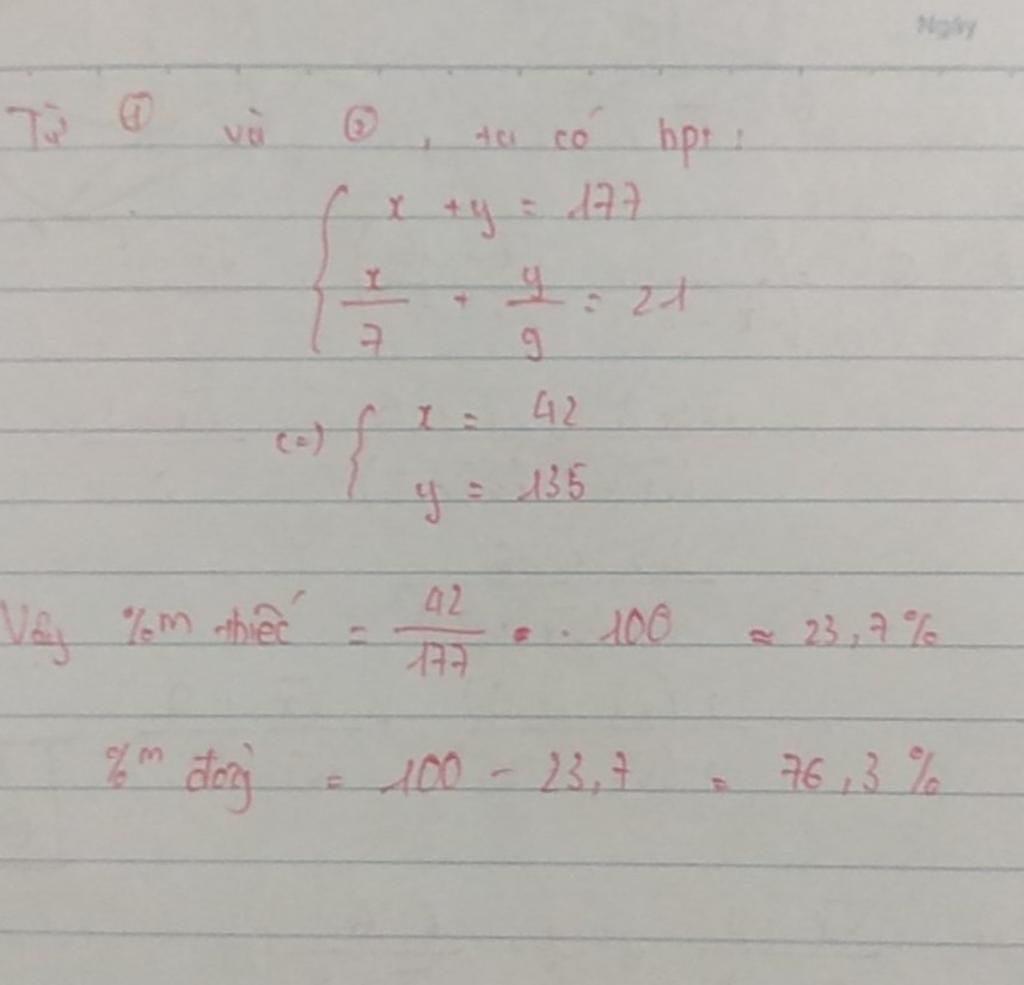 Ngày
Từ ① và ②, ta có hpt :
x + y = 177
x/7 + y/9 = 21
(=) x = 42
y = 135
Vậy %m thiếc = 42/177 . 100 ≈ 23,7 %
%m đồng = 100 - 23,7 = 76,3 %